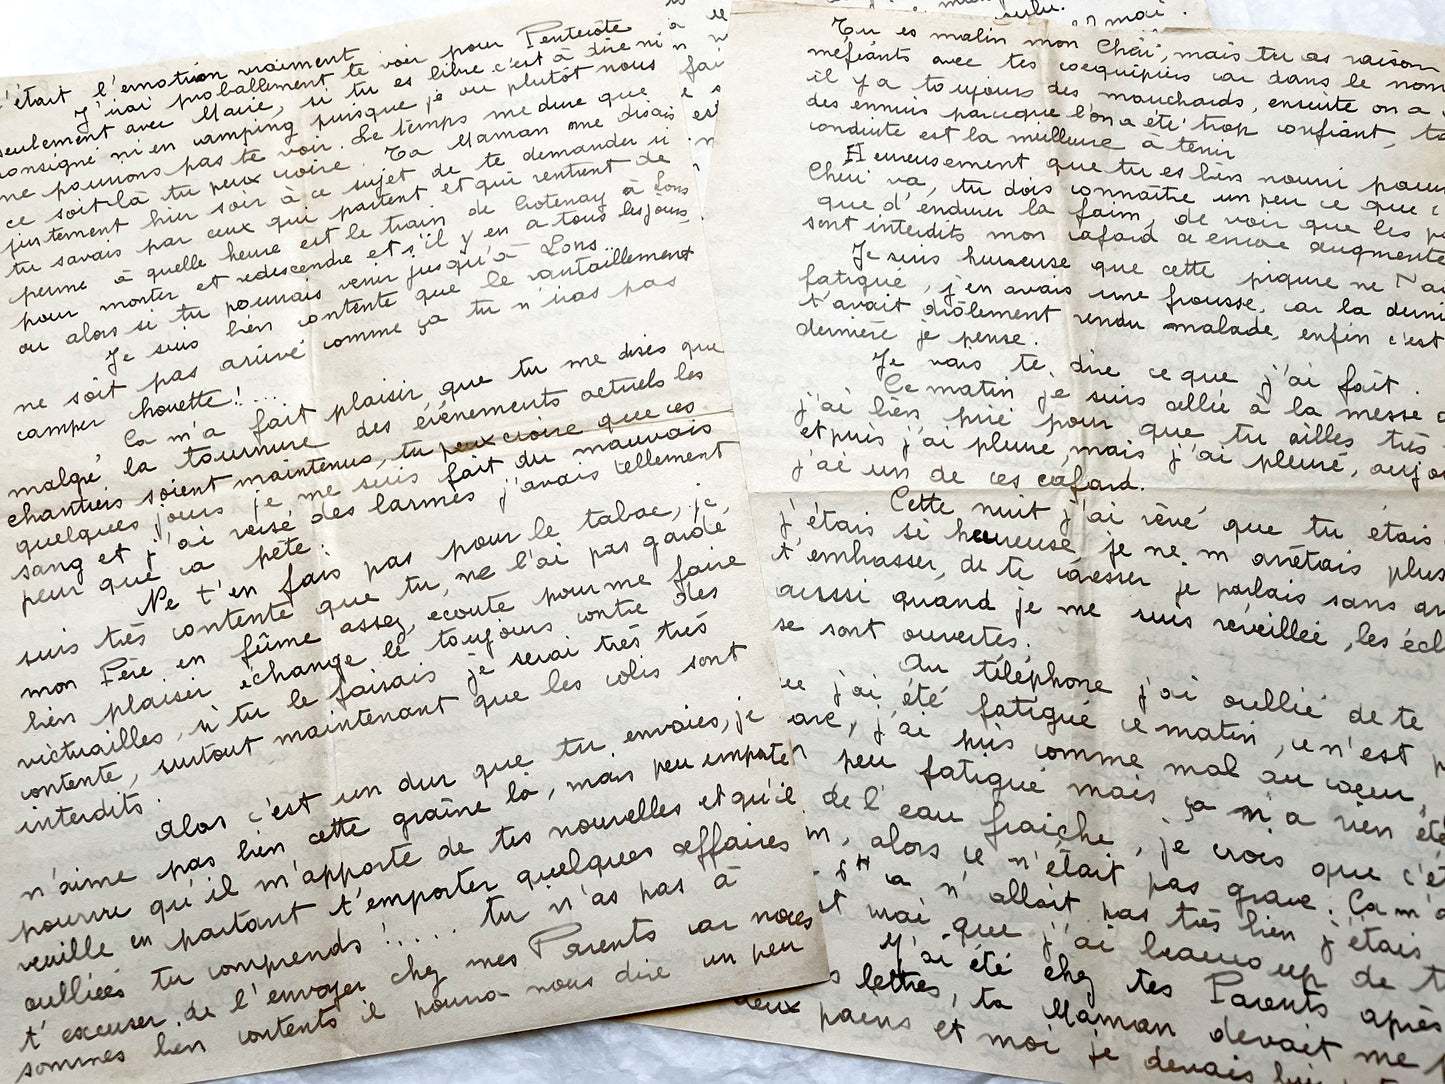 c'était l'emotion vraiment
J'irai proballement te voir pour Pentecôte
seulement avec Marie, si tu es libre c'est à dire ni
consigné ni en camping puisque je ou plutôt nous
ne pouvons pas te voir. Le temps me dure que
ce soit-là tu peux croire. Ta Maman me disais
justement hier soir à ce sujet de te demander si
tu savais par ceux qui partent et qui rentrent de
perme à quelle heure est le train de Crotenay à Lons
pour monter et redescendre et s'il y en a tous les jours
ou alors si tu pourrais venir jusqu'à Lons..
Je suis bien contente que le ravitaillement
ne soit pas arrivé comme ça tu n'iras pas
camper houette!...
Ca m'a fait plaisir, que tu me dises que
malgré la tournure des événements actuels les
chantiers soient maintenus, tu peux croire que ces
quelques jours je me suis fait du mauvais
sang et j'ai versé des larmes j'avais tellement
peur que ça pète.
Ne t'en fais pas pour le tabac, je
suis très contente que tu, ne l'ai pas gardé
mon Père en fume assez, ecoute pour me faire
bien plaisir échange le toujours contre des
victuailles, si tu le faisais je serai très très
contente, surtout maintenant que les colis sont
interdits.
Alors c'est un dur que tu envoies, je
n'aime pas bien cette graine là, mais peu importe
pourvu qu'il m'apporte de tes nouvelles et qu'il
veuille en partant t'emporter quelques affaires
oubliées tu comprends!.... tu n'as pas à
t'excuser de l'envoyer chez mes Parents car nous
sommes bien contents il pourra nous dire un peu
sulu.
moi.
Tu es malin mon Chéri, mais tu as raison
méfiants avec tes coequipiers car dans le nom
il y a toujours des mouchards, ensuite on a
des ennuis parceque l'on a été trop confiant, ta
conduite est la meilleure à tenir
Heureusement que tu es bien nourri pauvre
Chéri va, tu dois connaître un peu ce que c'
que d'endurer la faim, de voir que les
sont interdits mon cafard a encore augmenté
Je suis heureuse que cette piqure ne t'ai
fatigué, j'en avais une frousse, car la derni
t'avait drôlement rendu malade, enfin c'est
dernière je pense.
Je vais te dire ce que j'ai fait.
Ce matin je suis allée à la messe
j'ai bien prié pour que tu ailles très
et puis j'ai pleuré, mais j'ai pleuré, aujo
j'ai un de ces cafard.
Cette nuit j'ai rêvé que tu étais
j'étais si heureuse je ne m'arêtais plus
t'embrasser, de te caresser je parlais sans
aussi quand je me suis réveillée, les écl
se sont ouvertes.
Au téléphone j'ai oublié de te
j'ai été fatigué ce matin, ce n'est
j'ai pris comme mal au coeur,
peu fatigué mais ça m'a rien été
de l'eau fraîche, je crois que c'ét
alors ce n'était pas grave. Ca m'a
ça n'allait pas très bien j'étais
que j'ai beaucoup de
J'ai été chez tes Parents après
lettres, ta Maman devait me
deux pains et moi je devais lui